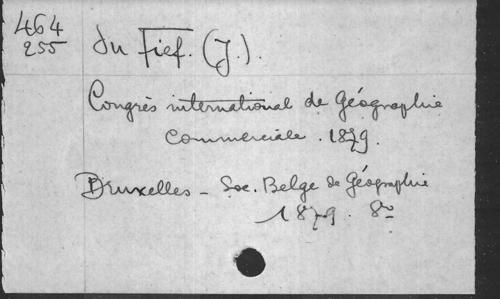 464
255
du Fief. (J.).
Congrès international de Géographie
Commerciale. 1879.
Bruxelles - Soc. Belge de Géographie
1879. 8º